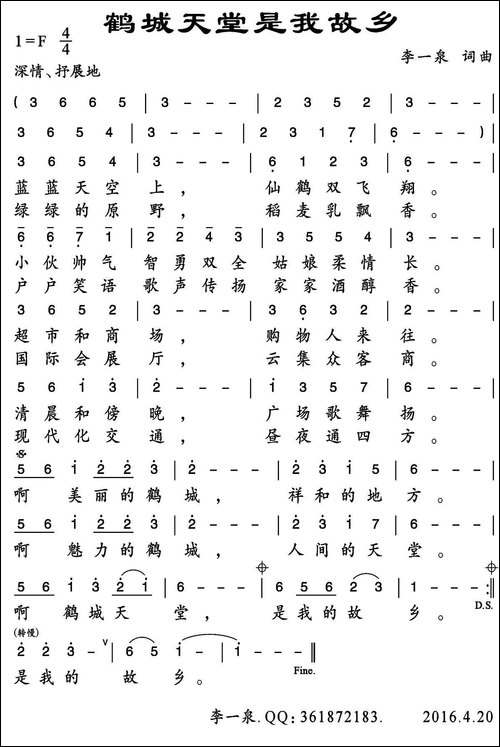 鹤城天堂是我故乡
1=F 4/4
李一泉 词曲
深情、抒展地
( 3 6 6 5 | 3 - - - | 2 3 5 2 | 3 - - - |
3 6 5 4 | 3 - - - | 2 3 1 7 | 6 - - - )|
3 6 5 4 | 3 - - - | 6 1 2 3 | 6 - - - |
蓝蓝天空上， 仙鹤双飞翔。
绿绿的原野， 稻麦乳飘香。
6 6 7 1 | 2 2 4 3 | 3 5 5 4 | 3 - - - |
小伙帅气智勇双全姑娘柔情长。
户户笑语歌声传扬家家酒醇香。
3 6 5 2 | 3 - - - | 3 6 3 2 | 2 - - - |
超市和商场， 购物人来往。
国际会展厅， 云集众客商。
5 6 1 3 | 2 - - - | 1 3 5 7 | 6 - - - |
清晨和傍晚， 广场歌舞扬。
现代化交通， 昼夜通四方。
5 6 1 2 2 3 | 2 - - - | 2 3 1 5 | 6 - - - |
啊 美丽的鹤城， 祥和的地方。
5 6 1 2 2 3 | 2 - - - | 2 3 1 7 | 6 - - - |
啊 魅力的鹤城， 人间的天堂。
5 6 1 3 2 1 | 6 - - - | 6 5 6 2 3 | 1 - - - :‖
啊 鹤城天堂， 是我的故乡。 D.S.
(转慢)
2 2 3 - ∨ | 6 5 1 - | 1 - - - ‖
是我的故乡。 Fine.
李一泉.QQ:361872183. 2016.4.20